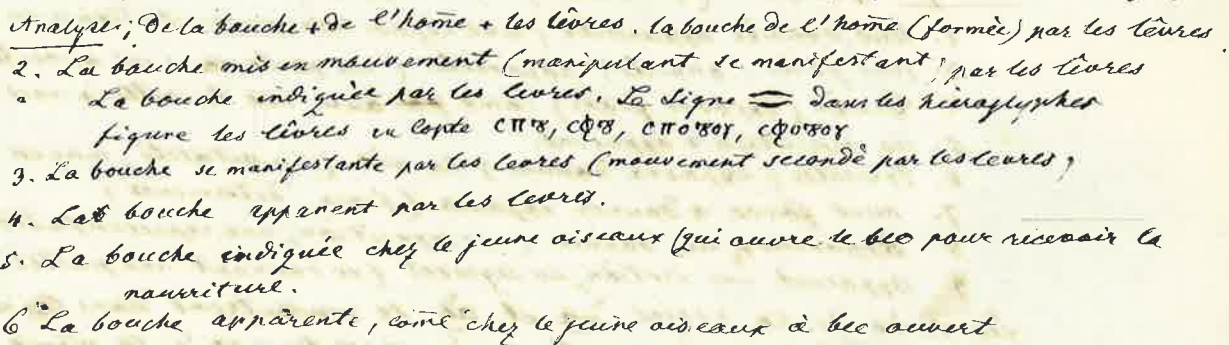 Analyse; De la bouche + de l'hom̄e + les lêvres. la bouche de l'hom̄e (formée) par les lêvres.
2. La bouche mis en mouvement (manipulant se manifestant; par les lêvres
" La bouche indiquée par les levres. Le Signe dans les hieroglyphes
figure les lêvres en Copte ⲥⲡⲟⲩ, ⲥⲫⲟⲩ, ⲥⲡⲟⲧⲟⲩ, ⲥⲫⲟⲧⲟⲩ
3. La bouche se manifestante par les levres (mouvement secondé par les levres;
4. La bouche apparent par les levres.
5. La bouche indiquée chez le jeune oiseaux (qui ouvre le bec pour recevoir la
nourriture.
6 La bouche apparente, com̄e chez le jeune oiseaux à bec ouvert